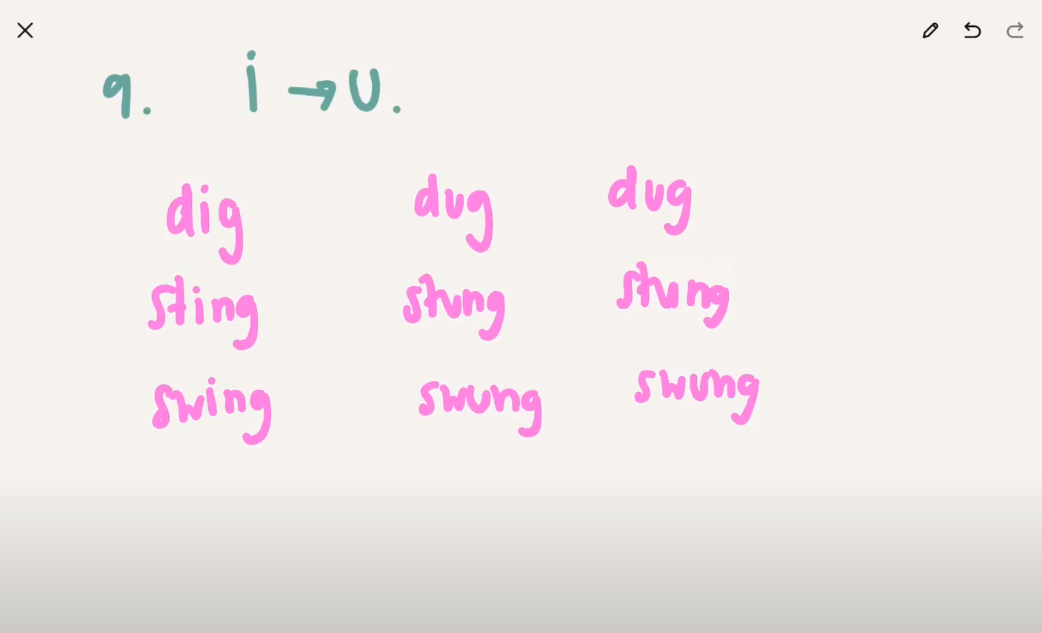 9. i → u.
dig dug dug
sting stung stung
swing swung swung